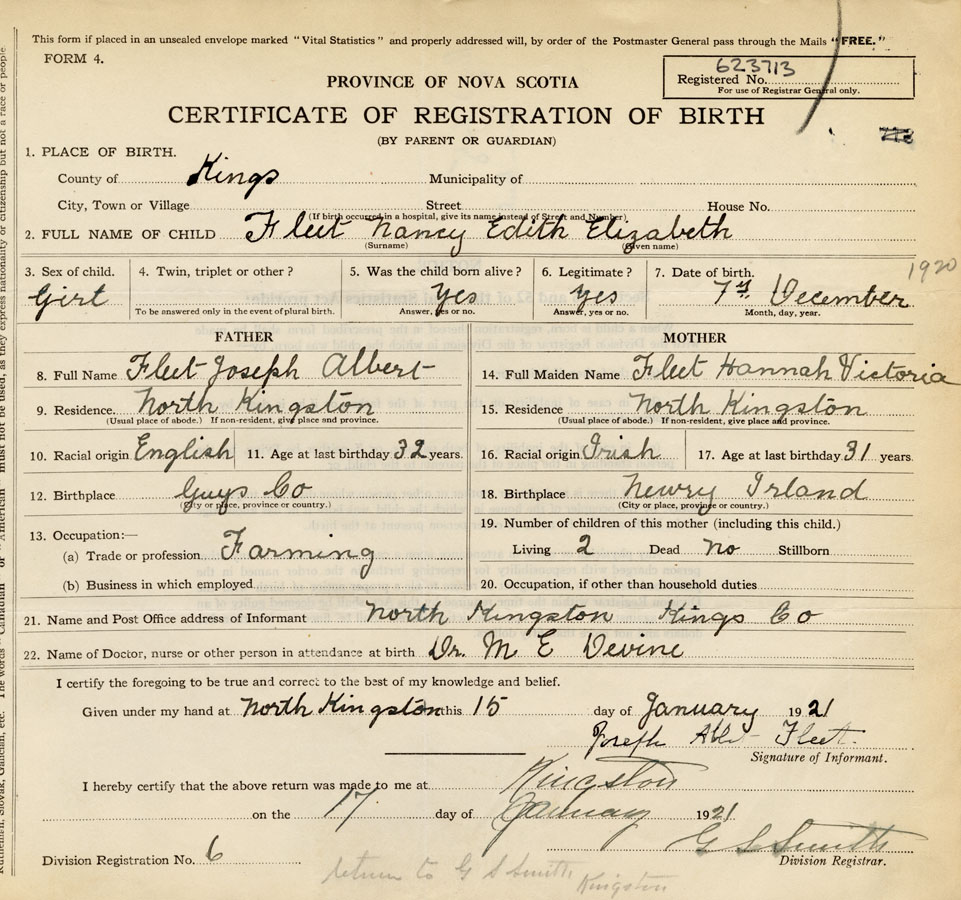 This form if placed in an unsealed envelope marked "Vital Statistics" and properly addressed will, by order of the Postmaster General pass through the Mails "FREE."
FORM 4.
623713
Registered No.
For use of Registrar General only.
PROVINCE OF NOVA SCOTIA
CERTIFICATE OF REGISTRATION OF BIRTH
(BY PARENT OR GUARDIAN)
1. PLACE OF BIRTH.
County of Kings Municipality of
City, Town or Village Street House No.
(If birth occurred in a hospital, give its name instead of Street and Number)
2. FULL NAME OF CHILD Fleet Nancy Edith Elizabeth
(Surname) (Given name)
1920
3. Sex of child. 4. Twin, triplet or other? 5. Was the child born alive? 6. Legitimate? 7. Date of birth.
Girl Yes Yes 7th December
To be answered only in the event of plural birth. Answer, yes or no. Answer, yes or no. Month, day, year.
FATHER MOTHER
8. Full Name Fleet Joseph Albert 14. Full Maiden Name Fleet Hannah Victoria
9. Residence. North Kingston 15. Residence North Kingston
(Usual place of abode.) If non-resident, give place and province. (Usual place of abode.) If non-resident, give place and province.
10. Racial origin English 11. Age at last birthday 32 years. 16. Racial origin Irish 17. Age at last birthday 31 years.
12. Birthplace Guys Co 18. Birthplace Newry Irland
(City or place, province or country.) (City or place, province or country.)
13. Occupation:— 19. Number of children of this mother (including this child.)
(a) Trade or profession Farming Living 2 Dead no Stillborn
(b) Business in which employed 20. Occupation, if other than household duties
21. Name and Post Office address of Informant North Kingston Kings Co
22. Name of Doctor, nurse or other person in attendance at birth Dr. M E Devine
I certify the foregoing to be true and correct to the best of my knowledge and belief.
Given under my hand at North Kingston this 15 day of January 1921
Joseph Fleet
Signature of Informant.
I hereby certify that the above return was made to me at Kingston
on the 17 day of January 1921
G S Smith
Division Registration No. 6 Division Registrar.
return to G S Smith
Kingston